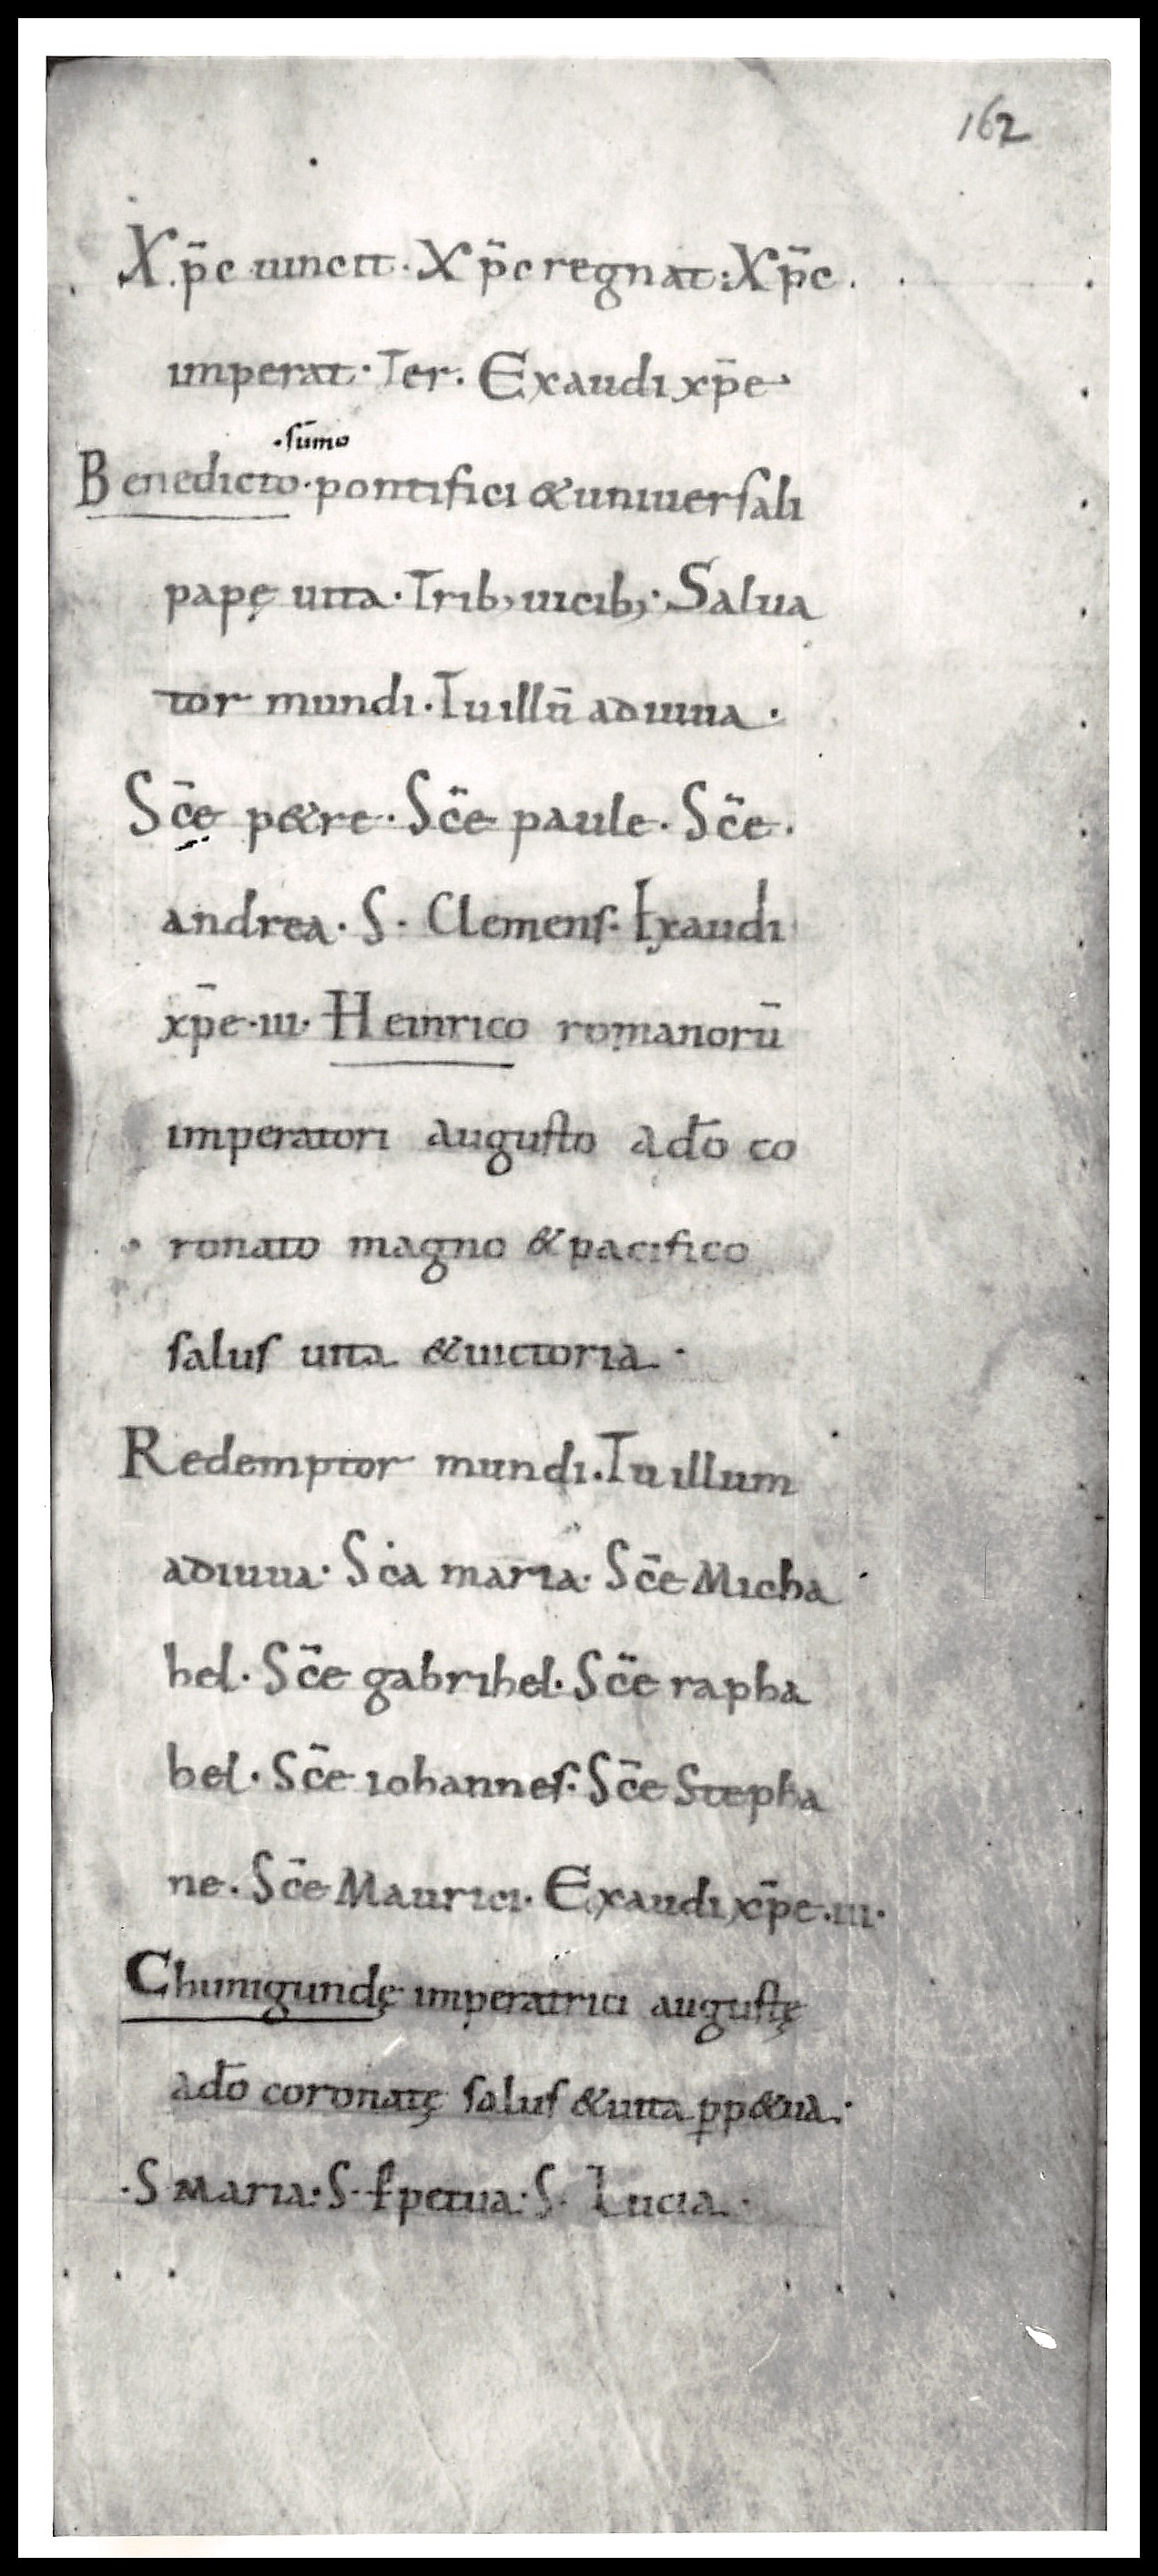 162
Xp̄c uincit · Xp̄c regnat : Xp̄c .
imperat · Ter · Exaudi xp̄e ·
· sūmo
Benedicto · pontifici & uniuersali
papę uita · Trib; uicib; · Salua
tor mundi · Tu illū adiuua ·
Sc̄e p&re · Sc̄e paule · Sc̄e ·
andrea · S · Clemens · Exaudi
xp̄e · III · Heinrico romanorū
imperatori augusto ad̄o co
ronato magno & pacifico
salus uita & uictoria ·
Redemptor mundi · Tu illum
adiuua · Sc̄a maria · Sc̄e Micha
hel · Sc̄e gabrihel · Sc̄e rapha
hel · Sc̄e iohannes · Sc̄e Stepha
ne · Sc̄e Maurici · Exaudi xp̄e · III ·
Chunigundę imperatrici augustę
ad̄o coronatę salus & uita ꝑp&ua ·
· S Maria · S · ꝑpetua · S · Lucia ·